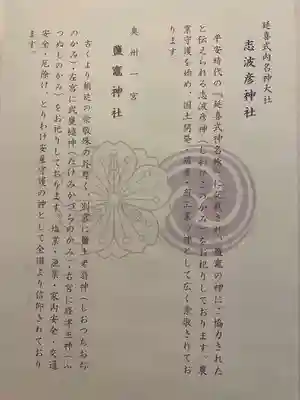 延喜式内名神大社
志波彦神社
平安時代の『延喜式神名帳』に記載され、鹽竈の神にご協力された
と伝えられる志波彦神（しわひこのかみ）をお祀りしております。農
業守護を始め、国土開発・産業・商工業の神として広く崇敬されてお
ります
奥州一宮
鹽竈神社
古くより朝廷の崇敬殊の外厚く、別宮に鹽土老翁神（しおつちおぢ
のかみ）・左宮に武甕槌神（たけみかづちのかみ）・右宮に経津主神（ふ
つぬしのかみ）をお祀りしております。塩業・漁業・家内安全・交通
安全・厄除け、とりわけ安産守護の神として全国より信仰されており
ます。